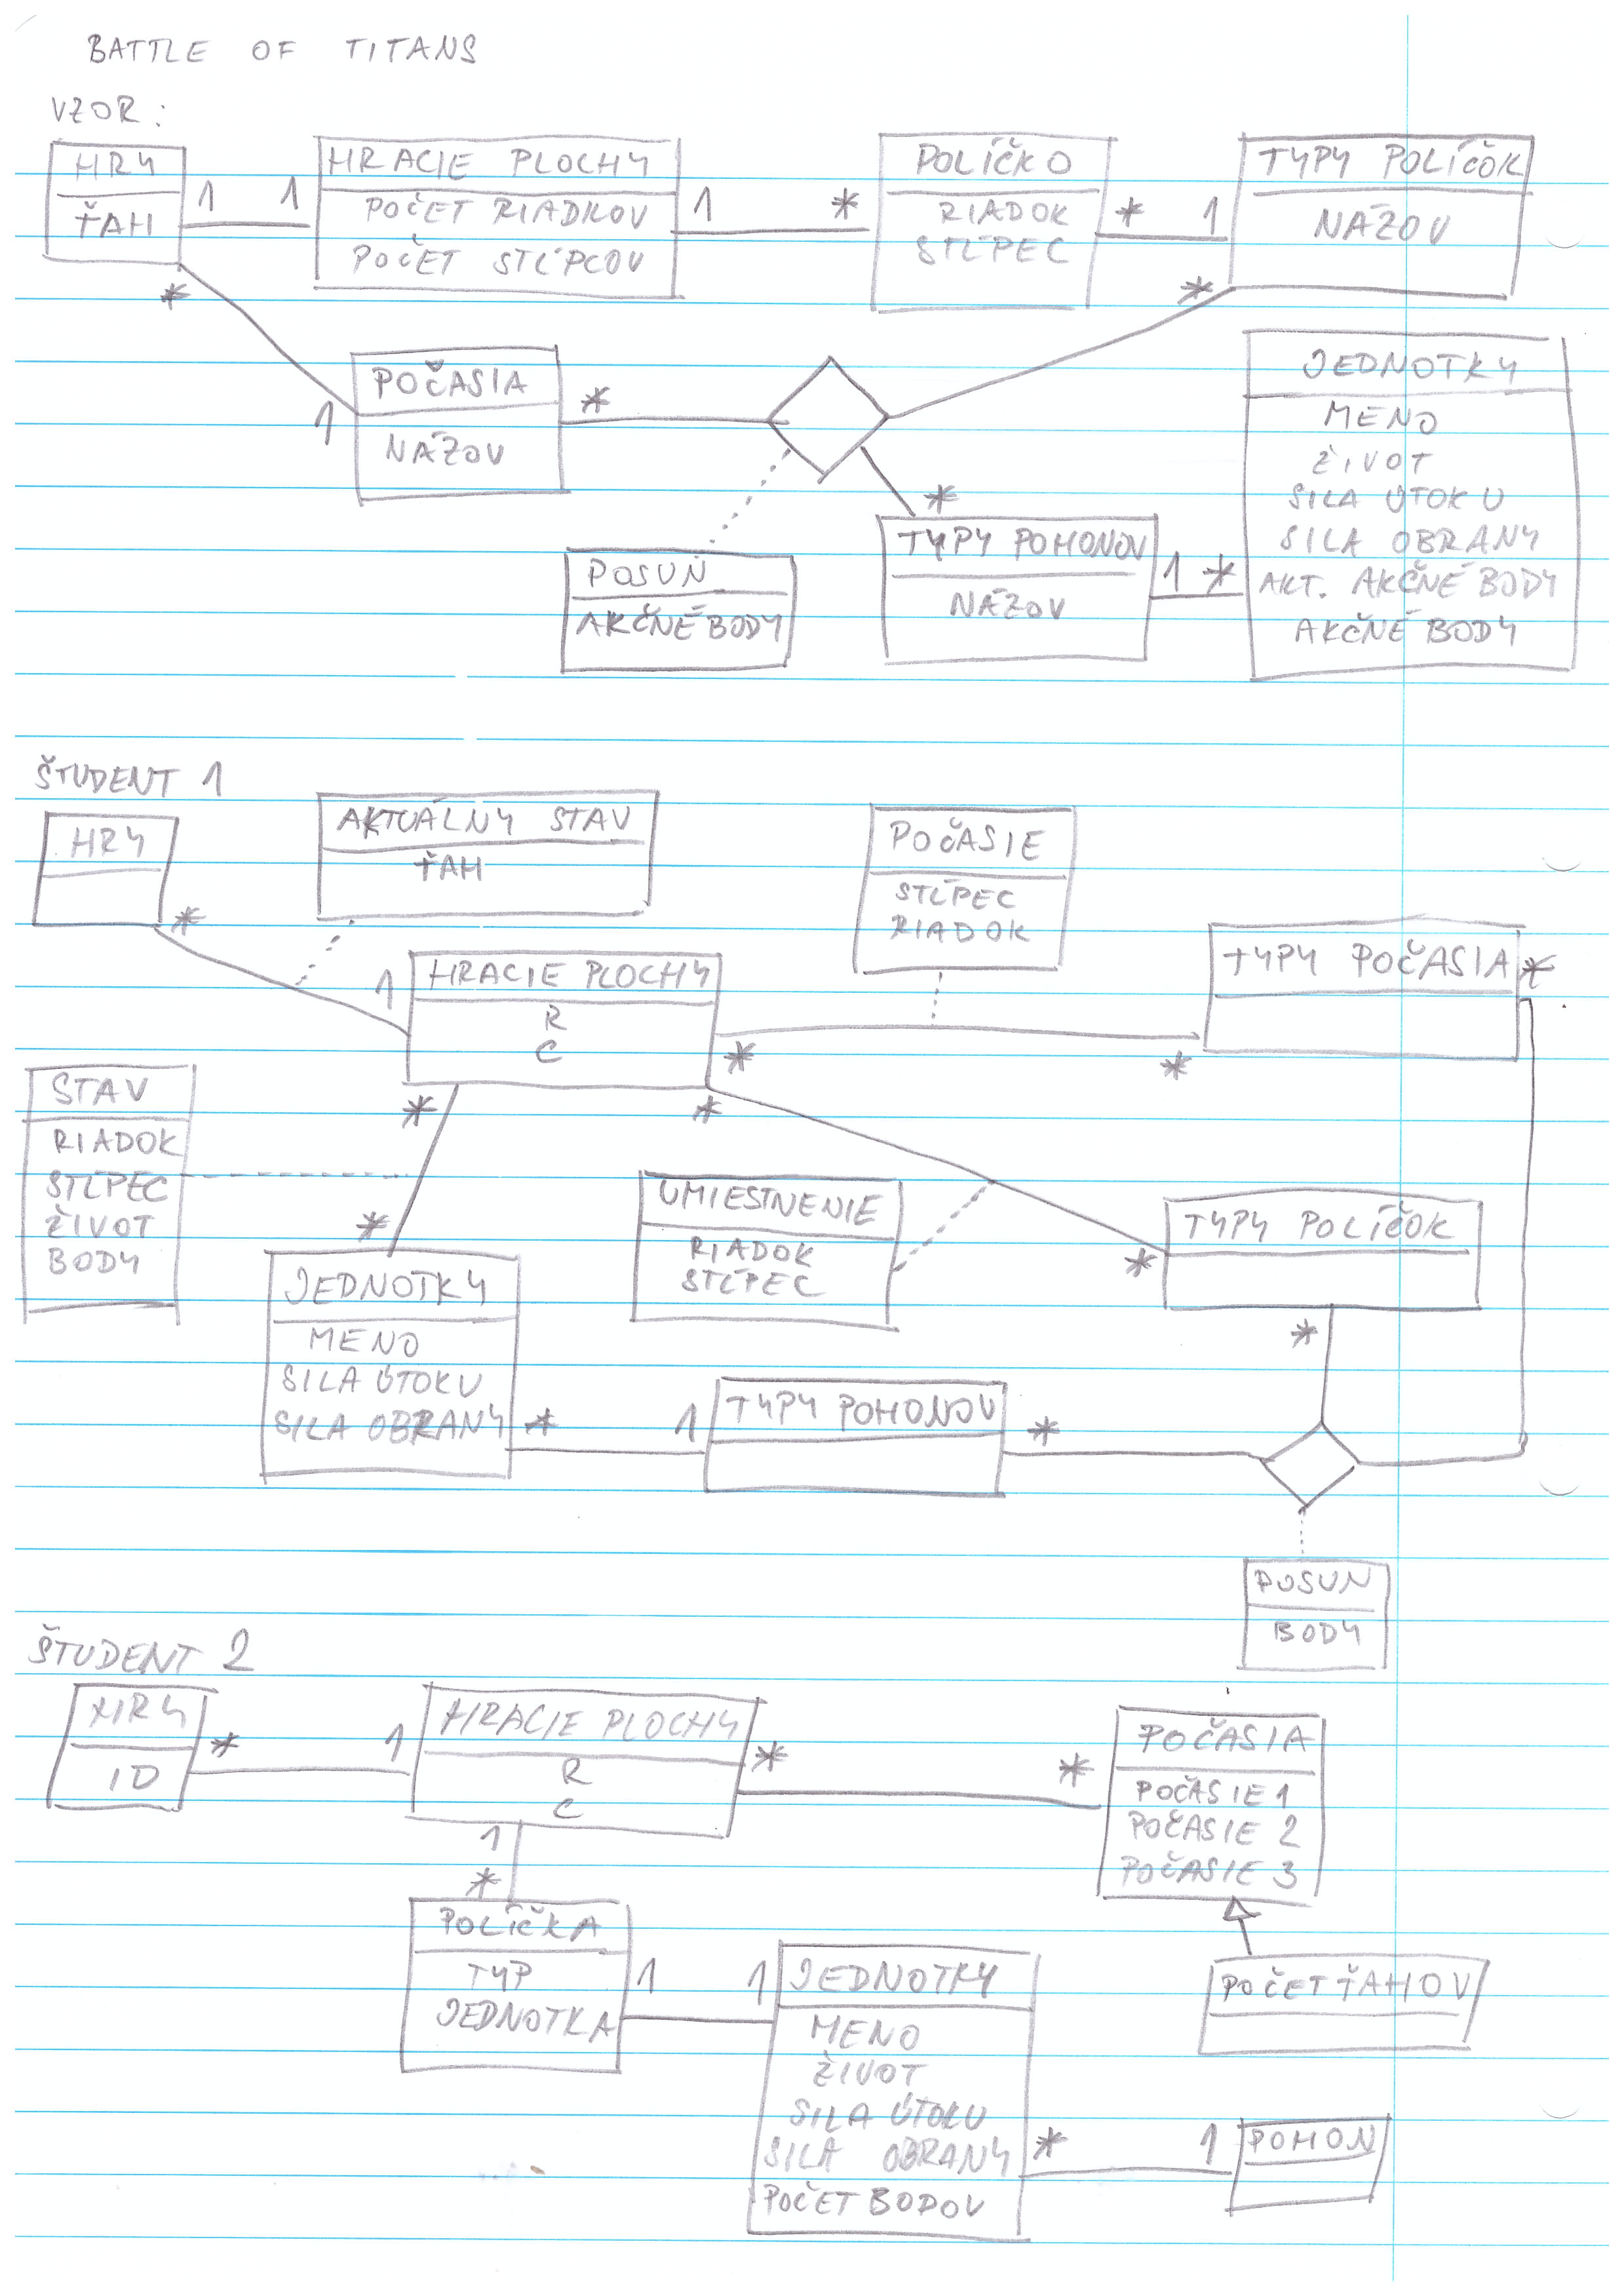 BATTLE OF TITANS
VZOR:
HRY
ŤAH
1 1
HRACIE PLOCHY
POČET RIADKOV
POČET STĹPCOV
1 *
POLÍČKO
RIADOK
STĹPEC
* 1
TYPY POLÍČOK
NÁZOV
*
1
POČASIA
NÁZOV
*
*
*
POSUN
AKČNÉ BODY
TYPY POHONOV
NÁZOV
1 *
JEDNOTKY
MENO
ŽIVOT
SILA ÚTOKU
SILA OBRANY
AKT. AKČNÉ BODY
AKČNÉ BODY
ŠTUDENT 1
HRY
*
AKTUÁLNY STAV
ŤAH
1
HRACIE PLOCHY
R
C
POČASIE
STĹPEC
RIADOK
*
*
TYPY POČASIA
*
STAV
RIADOK
STĹPEC
ŽIVOT
BODY
*
*
*
UMIESTNENIE
RIADOK
STĹPEC
*
TYPY POLÍČOK
*
JEDNOTKY
MENO
SILA ÚTOKU
SILA OBRANY
* 1
TYPY POHONOV
*
POSUN
BODY
ŠTUDENT 2
HRY
ID
* 1
HRACIE PLOCHY
R
C
* *
POČASIA
POČASIE 1
POČASIE 2
POČASIE 3
1
*
POLÍČKA
TYP
JEDNOTKA
1 1
JEDNOTKY
MENO
ŽIVOT
SILA ÚTOKU
SILA OBRANY
POČET BODOV
POČET ŤAHOV
* 1
POHON